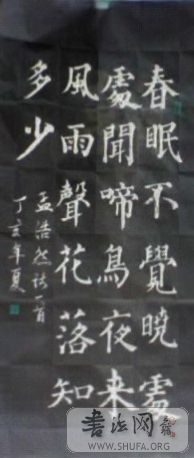 春眠不覺曉處
處聞啼鳥夜来
風雨聲花落知
多少
孟浩然詩一首
丁亥年夏
書法网
WWW.SHUFA.ORG